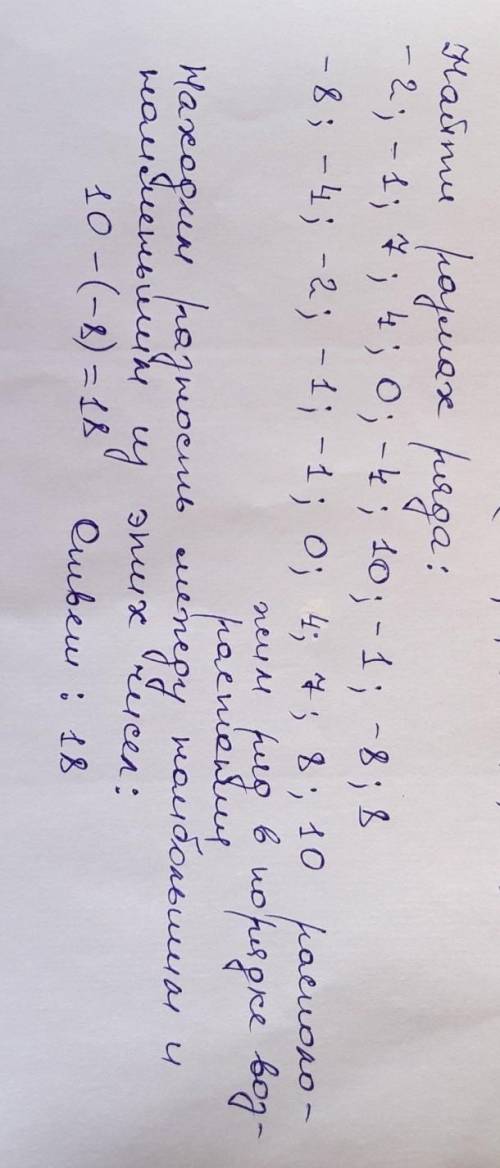 Найти размах ряда:
-2; -1; 7; 4; 0; -4; 10; -1; -8; 8
-8; -4; -2; -1; -1; 0; 4; 7; 8; 10 располо-
жим ряд в порядке воз-
растания
Находим разность между наибольшим и
наименьшим из этих чисел:
10 - (-8) = 18 Ответ: 18